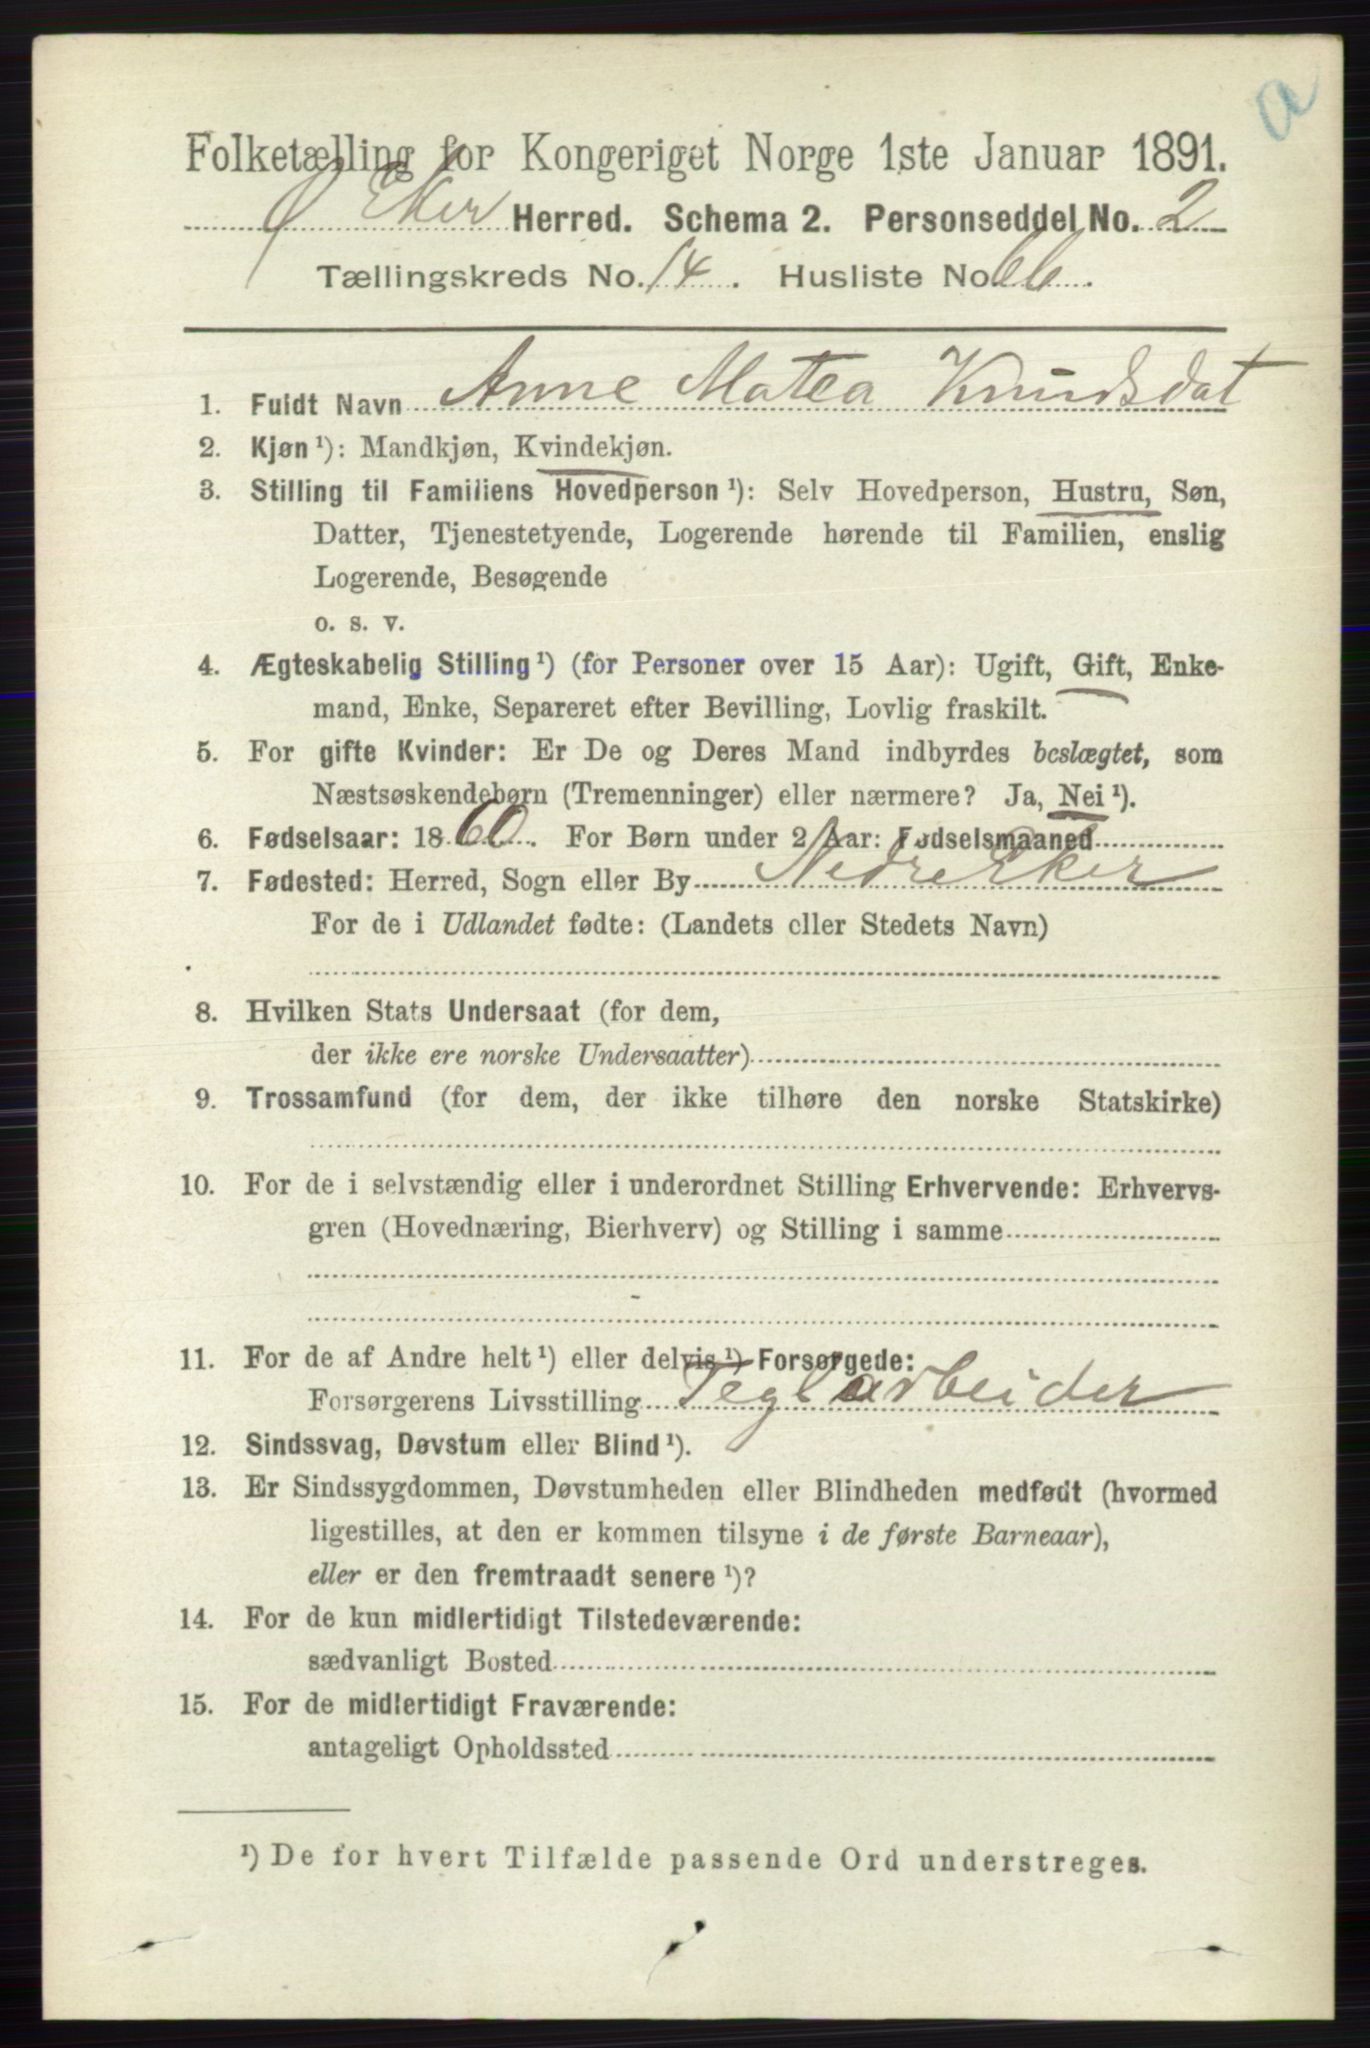 a
Folketælling for Kongeriget Norge 1ste Januar 1891.
Ø Eker Herred. Schema 2. Personseddel No. 2
Tællingskreds No. 14. Husliste No. 66.
1. Fuldt Navn Anne Matea Knudsdat
2. Kjøn¹): Mandkjøn, Kvindekjøn.
3. Stilling til Familiens Hovedperson¹): Selv Hovedperson, Hustru, Søn,
Datter, Tjenestetyende, Logerende hørende til Familien, enslig
Logerende, Besøgende
o. s. v.
4. Ægteskabelig Stilling¹) (for Personer over 15 Aar): Ugift, Gift, Enke-
mand, Enke, Separeret efter Bevilling, Lovlig fraskilt.
5. For gifte Kvinder: Er De og Deres Mand indbyrdes beslægtet, som
Næstsøskendebørn (Tremenninger) eller nærmere? Ja, Nei¹).
6. Fødselsaar: 1860. For Børn under 2 Aar: Fødselsmaaned
7. Fødested: Herred, Sogn eller By Nedre Eker
For de i Udlandet fødte: (Landets eller Stedets Navn)
8. Hvilken Stats Undersaat (for dem,
der ikke ere norske Undersaatter)
9. Trossamfund (for dem, der ikke tilhøre den norske Statskirke)
10. For de i selvstændig eller i underordnet Stilling Erhvervende: Erhvervs-
gren (Hovednæring, Bierhverv) og Stilling i samme
11. For de af Andre helt¹) eller delvis¹) Forsørgede:
Forsørgerens Livsstilling Teglarbeider
12. Sindssvag, Døvstum eller Blind¹).
13. Er Sindssygdommen, Døvstumheden eller Blindheden medfødt (hvormed
ligestilles, at den er kommen tilsyne i de første Barneaar),
eller er den fremtraadt senere¹)?
14. For de kun midlertidigt Tilstedeværende:
sædvanligt Bosted
15. For de midlertidigt Fraværende:
antageligt Opholdssted
¹) De for hvert Tilfælde passende Ord understreges.